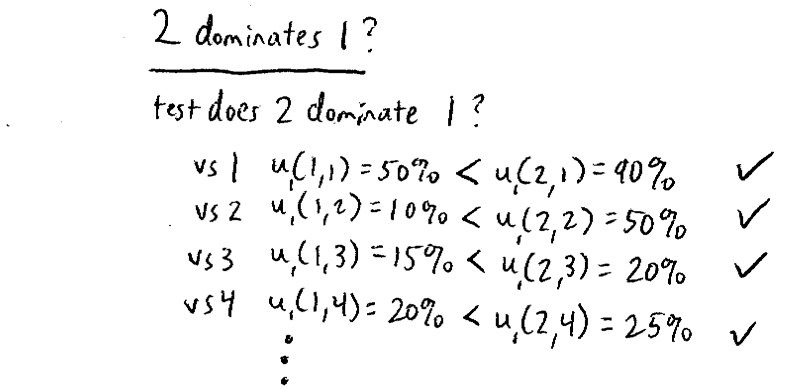 2 dominates 1?
test does 2 dominate 1?
vs 1 u₁(1,1) = 50% < u₁(2,1) = 90% ✓
vs 2 u₁(1,2) = 10% < u₁(2,2) = 50% ✓
vs 3 u₁(1,3) = 15% < u₁(2,3) = 20% ✓
vs 4 u₁(1,4) = 20% < u₁(2,4) = 25% ✓
⋮